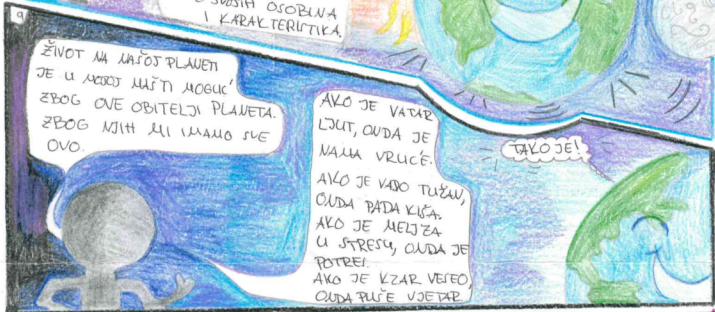 SVOJIH OSOBINA
I KARAKTERISTIKA.
9
ŽIVOT NA NAŠOJ PLANETI
JE U MOJOJ MAŠTI MOGUĆ
ZBOG OVE OBITELJI PLANETA.
ZBOG NJIH MI IMAMO SVE
OVO.
AKO JE VATAR
LJUT, ONDA JE
NAMA VRUĆE.
AKO JE VADO TUŽAN,
ONDA PADA KIŠA.
AKO JE MELJZA
U STRESU, ONDA JE
POTRES.
AKO JE KZAR VESEO,
ONDA PUŠE VJETAR
TAKO JE!